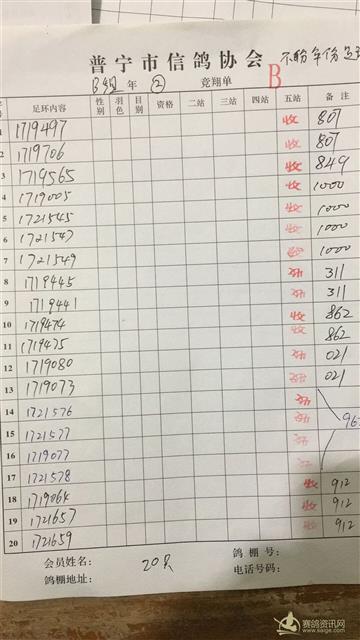 普宁市信鸽协会 不分年份
B组 年 ② 竞翔单 B
号 足环内容 性别 羽色 目别 资格 二站 三站 四站 五站 备注
1 1719497 收 807
2 1719706 收 807
3 1719565 收 849
4 1719005 收 1000
5 1721545 收 1000
6 1721547 收 1000
7 1721549 收 1000
8 1719445 311
9 1719441 311
10 1719474 收 862
11 1719475 收 862
12 1719080 021
13 1719073 021
14 1721576
15 1721577 96
16 1719077
17 1721578
18 1719064 收 912
19 1721657 收 912
20 1721659 收 912
会员姓名: 20只 鸽棚号:
鸽棚地址: 电话号码:
赛鸽资讯网
www.saige.com